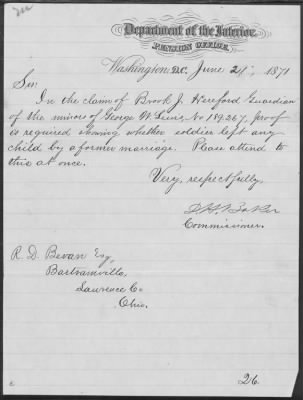 Department of the Interior,
PENSION OFFICE,
Washington, D.C. June 1871
Sir:
In the claim of Brook J. Hereford Guardian
of the minors of George W. Lewis, No 189.267, proof
is required showing whether soldier left any
child by a former marriage. Please attend to
this at once.
Very, respectfully,
Baker
Commissioner.
R. D. Bevan Esq,
Bartramville,
Lawrence Co
Ohio.
26